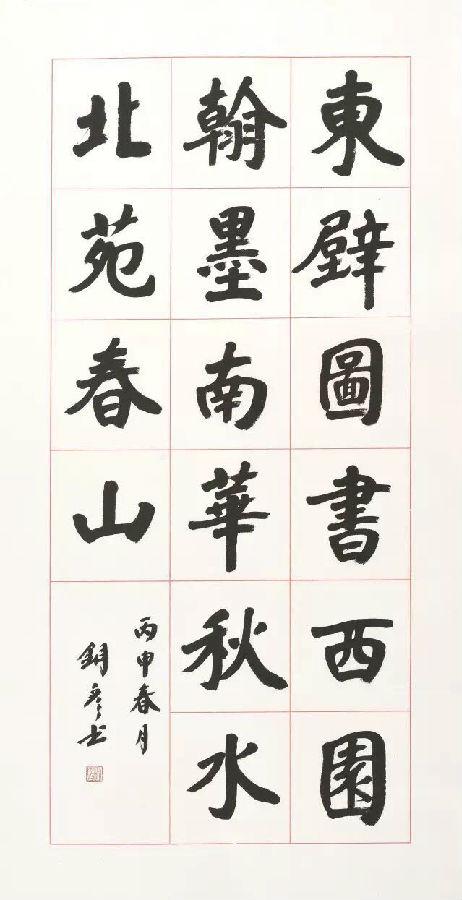 東壁圖書西園
翰墨南華秋水
北苑春山
丙申春月
彥書